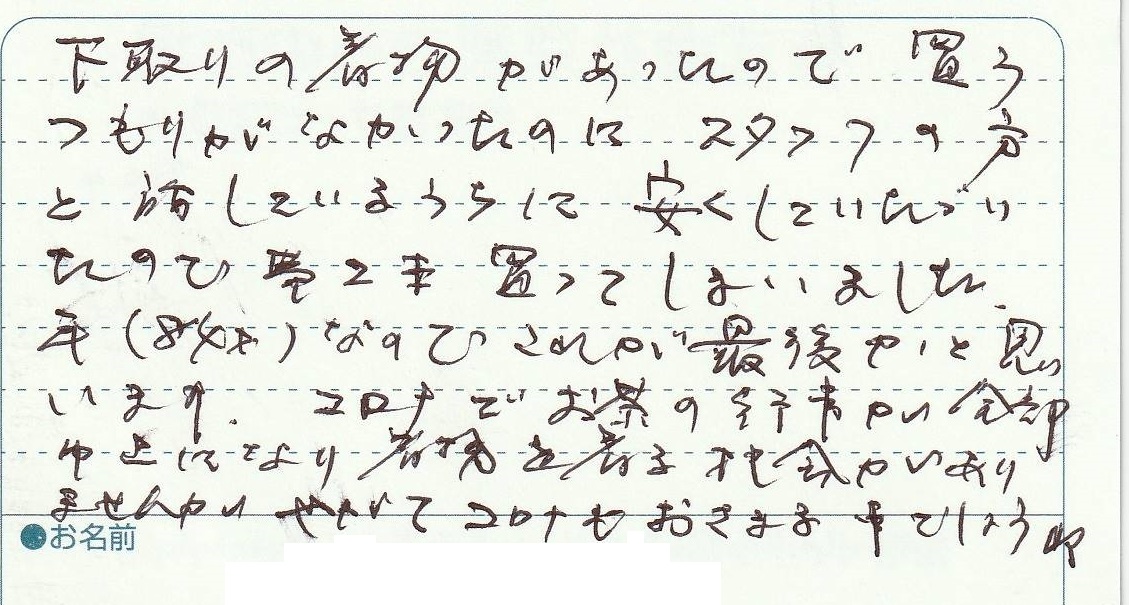 下取りの着物があったので買う
つもりがなかったのに スタッフの方
と話しているうちに安くしていただい
たので帯2本買ってしまいました。
年(84才)なのでこれが最後かと思
います。コロナでお茶の行事が全部
中止になり着物を着る機会があり
ませんが やがてコロナもおさまる事でしょう
●お名前